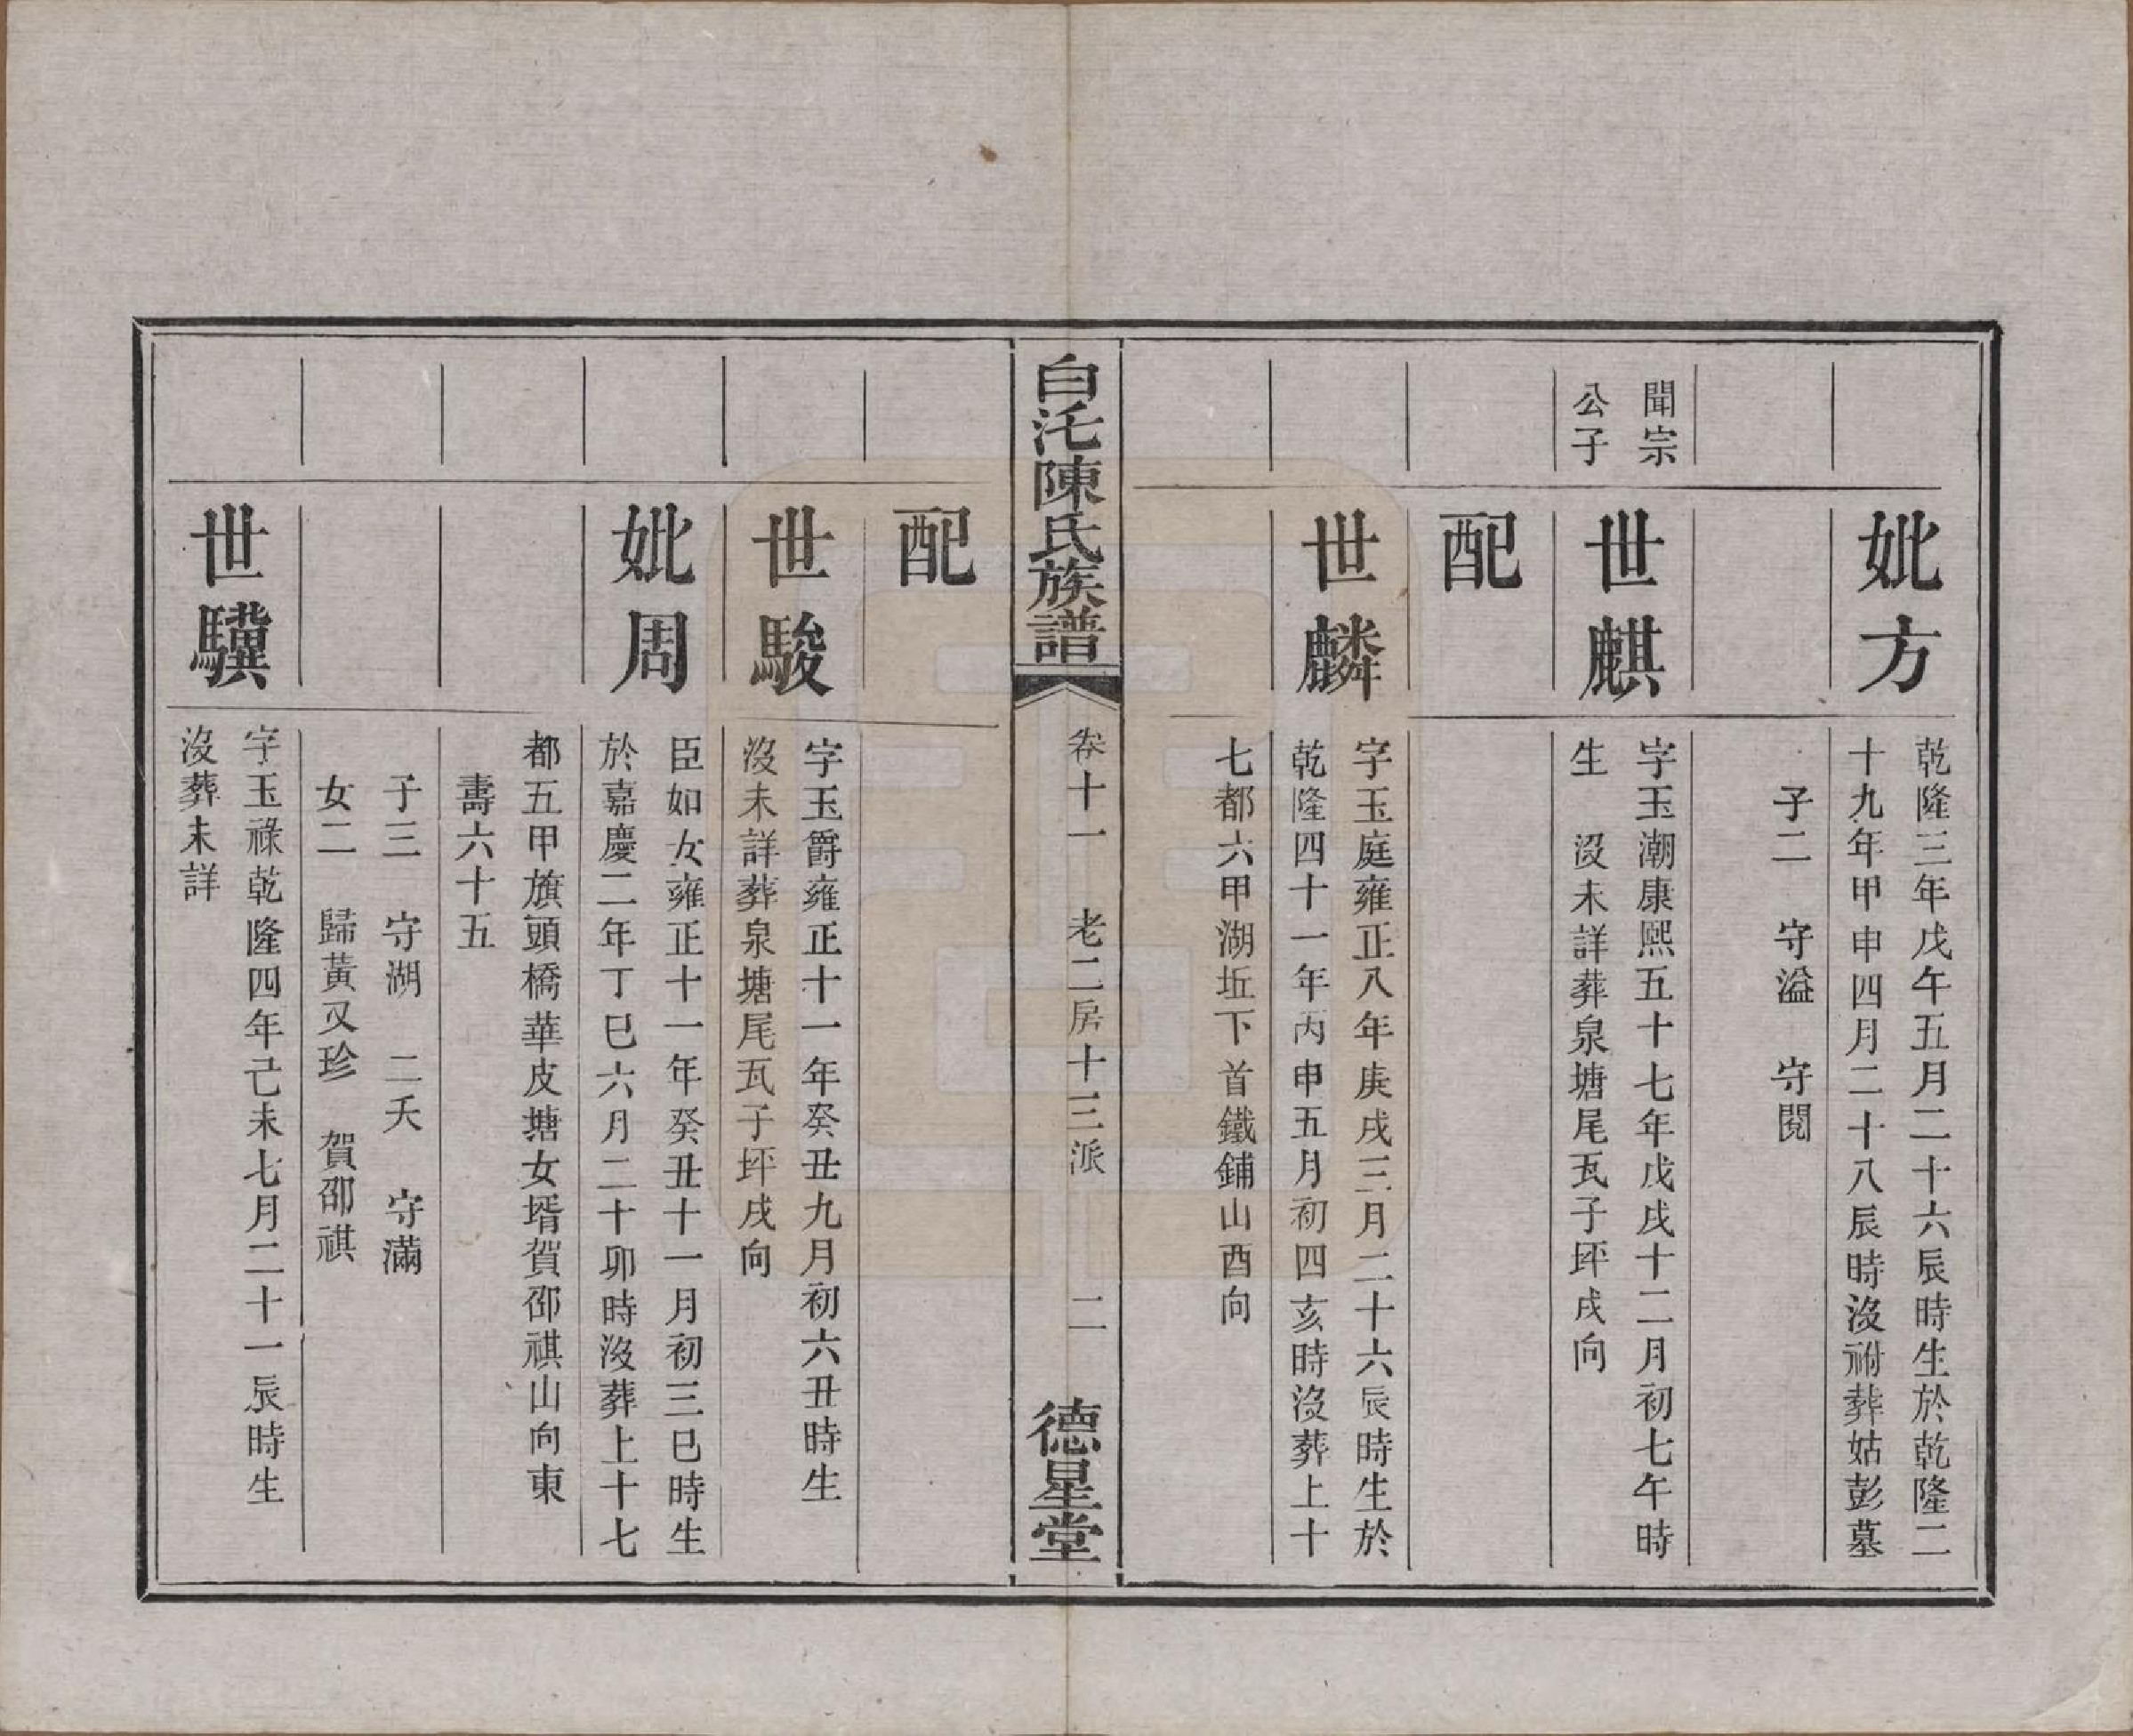 妣方
乾隆三年戊午五月二十六辰時生於乾隆二
十九年甲申四月二十八辰時沒祔葬姑彭墓
子二　守溢　守閱
聞宗
公子
世麒
字玉潮康熙五十七年戊戌十二月初七午時
生　沒未詳葬泉塘尾瓦子坪戌向
配
世麟
字玉庭雍正八年庚戌三月二十六辰時生於
乾隆四十一年丙申五月初四亥時沒葬上十
七都六甲湖坵下首鐵鋪山酉向
白沱陳氏族譜
卷十一　老二房十三派　二
德星堂
配
世駿
字玉爵雍正十一年癸丑九月初六丑時生
沒未詳葬泉塘尾瓦子坪戌向
妣周
臣如女雍正十一年癸丑十一月初三巳時生
於嘉慶二年丁巳六月二十卯時沒葬上十七
都五甲旗頭橋華皮塘女壻賀邵祺山向東
壽六十五
子三　守湖　二夭　守滿
女二　歸黃又珍　賀邵祺
世驥
字玉祿乾隆四年己未七月二十一辰時生
沒葬未詳